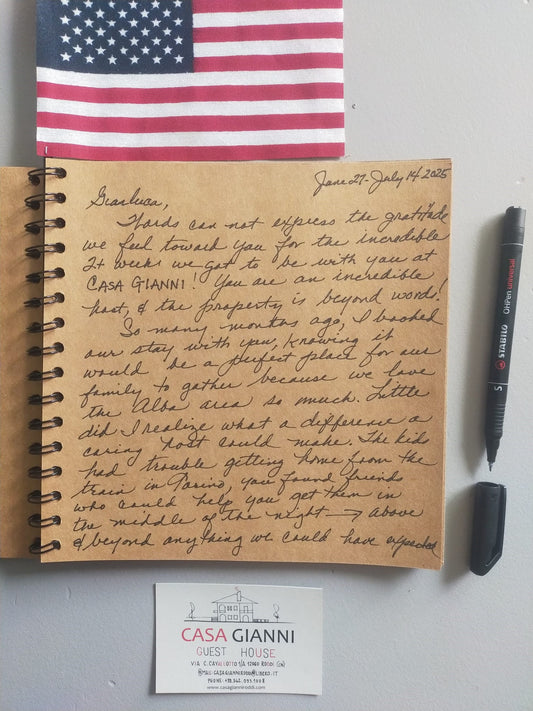 June 27-July 14 2025
Gianluca,
Words can not express the gratitude
we feel toward you for the incredible
2+ weeks we got to be with you at
CASA GIANNI! You are an incredible
host, & the property is beyond words!
So many months ago, I booked
our stay with you, knowing it
would be a perfect place for our
family to gather because we love
the Alba area so much. Little
did I realize what a difference a
caring host could make. The kids
had trouble getting home from the
train in Torino, you found friends
who could help you get them in
the middle of the night → above
& beyond anything we could have expected
STABILO OHPen universal
S
CASA GIANNI
GUEST HOUSE
VIA C. CAVALLOTTO 1/A 12060 RODDI (CN)
@MAIL: CASAGIANNIRODDI@LIBERO.IT
www.casagianniroddi.com